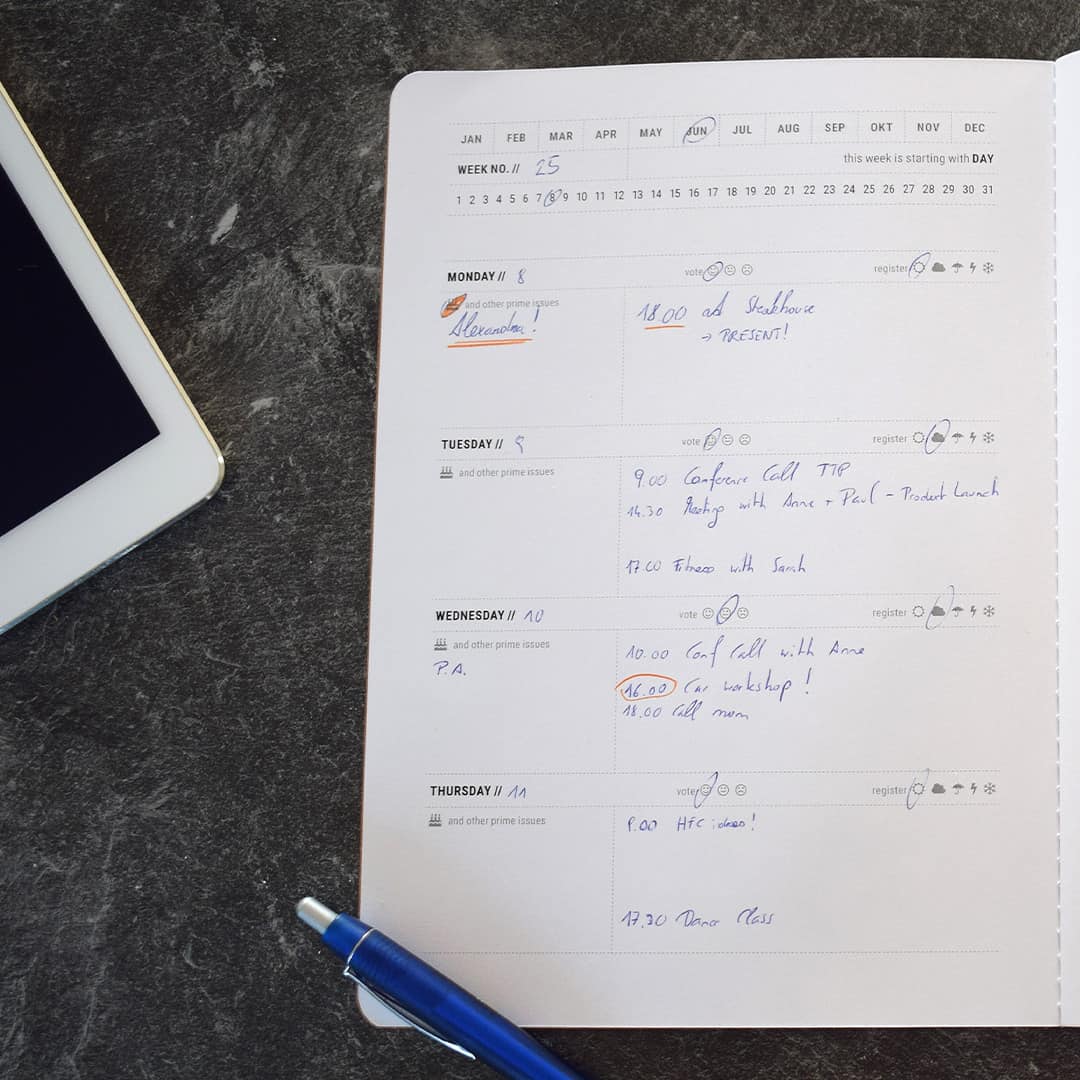 JAN FEB MAR APR MAY JUN JUL AUG SEP OKT NOV DEC
WEEK NO. // 25 this week is starting with DAY
1 2 3 4 5 6 7 8 9 10 11 12 13 14 15 16 17 18 19 20 21 22 23 24 25 26 27 28 29 30 31
MONDAY // 8 vote register
and other prime issues
Alexandra!
18.00 at Steakhouse
→ PRESENT!
TUESDAY // 9 vote register
and other prime issues
9.00 Conference Call TTP
14.30 Meeting with Anne + Paul - Product Launch
17.00 Fitness with Sarah
WEDNESDAY // 10 vote register
and other prime issues
P.A.
10.00 Conf Call with Anne
16.00 Car workshop!
18.00 Call mom
THURSDAY // 11 vote register
and other prime issues
9.00 HFC ideas!
17.30 Dance Class